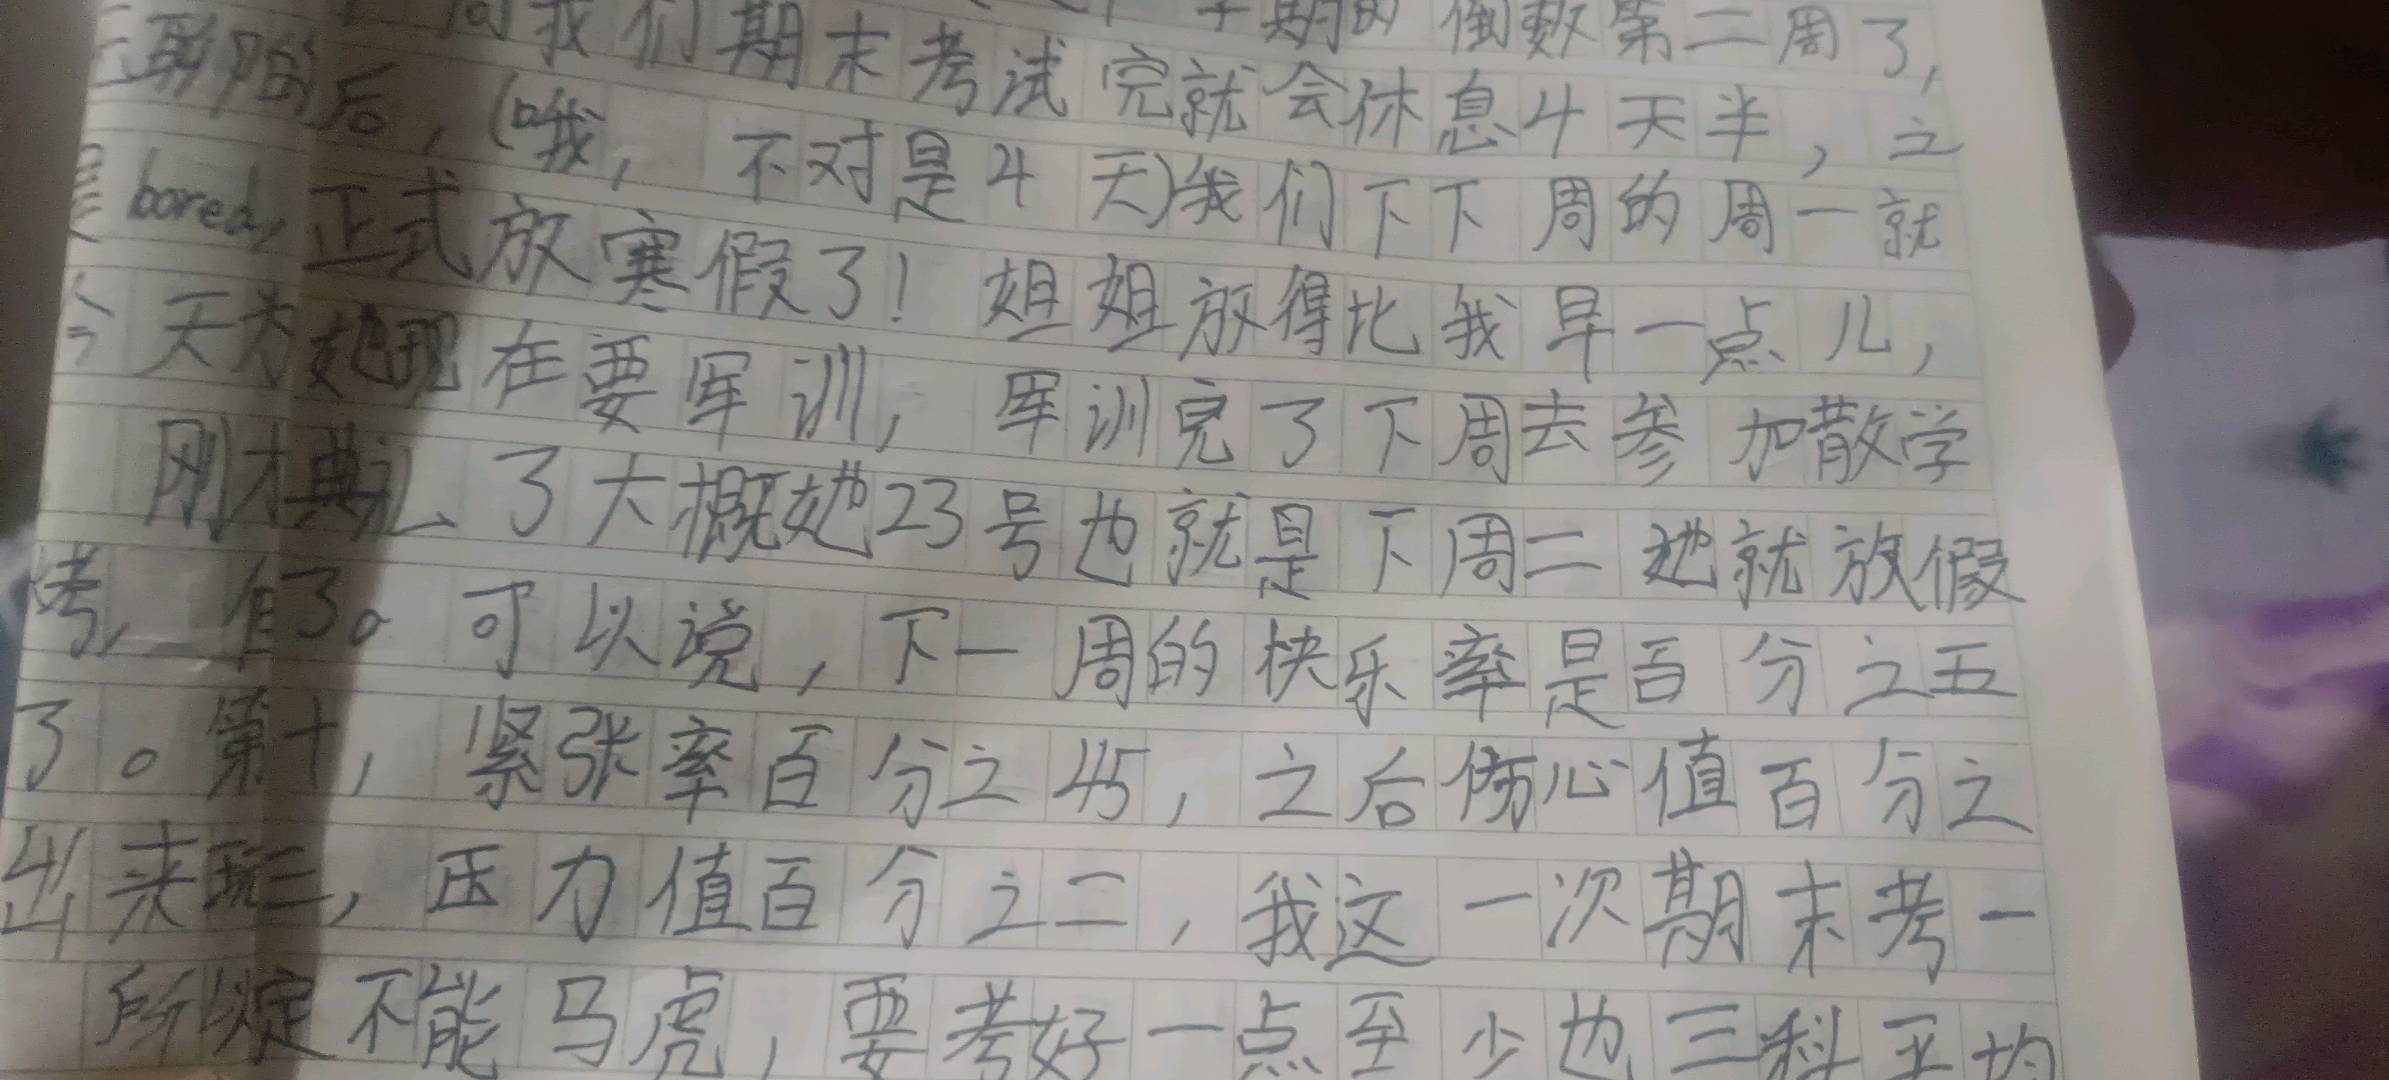 学期的倒数第二周了，
周我们期末考试完就会休息4天半，之
后，（哦，不对是4天）我们下下周的周一就
正式放寒假了！姐姐放得比我早一点儿，
她现在要军训，军训完了下周去参加散学
典礼了大概她23号也就是下周二她就放假
了。可以说，下一周的快乐率是百分之五
十，紧张率百分之45，之后伤心值百分之
三，压力值百分之二，我这一次期末考一
定不能马虎，要考好一点至少也三科平均
bored,
天为
刚才
考，
了。第
出来玩
所以